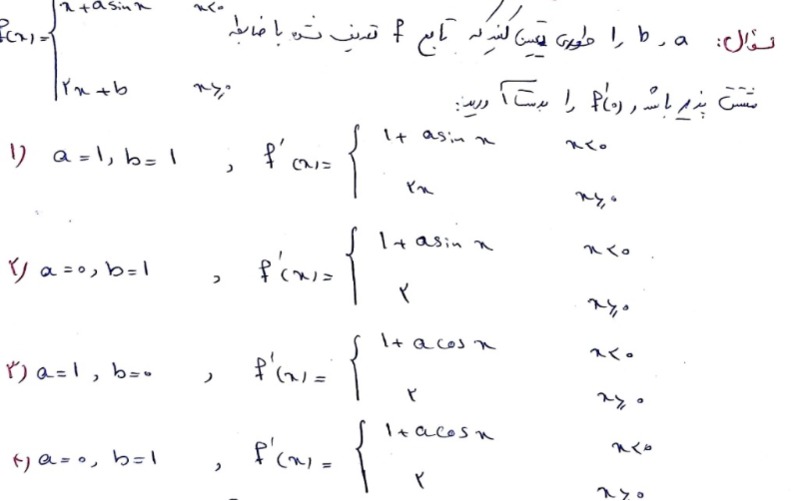 سؤال: a و b را طوری تعیین کنید که تابع f تعریف شده با ضابطه f(x) = { x + a sin x x<۰
۲x + b x≥۰
مشتق پذیر باشد و f'(۰) را بدست آورید:
۱) a = 1, b = 1 , f'(x) = { 1 + a sin x x<۰
۲x x≥۰
۲) a = ۰, b = 1 , f'(x) = { 1 + a sin x x<۰
۲ x≥۰
۳) a = 1, b = ۰ , f'(x) = { 1 + a cos x x<۰
۲ x≥۰
۴) a = ۰, b = 1 , f'(x) = { 1 + a cos x x<۰
۲ x≥۰